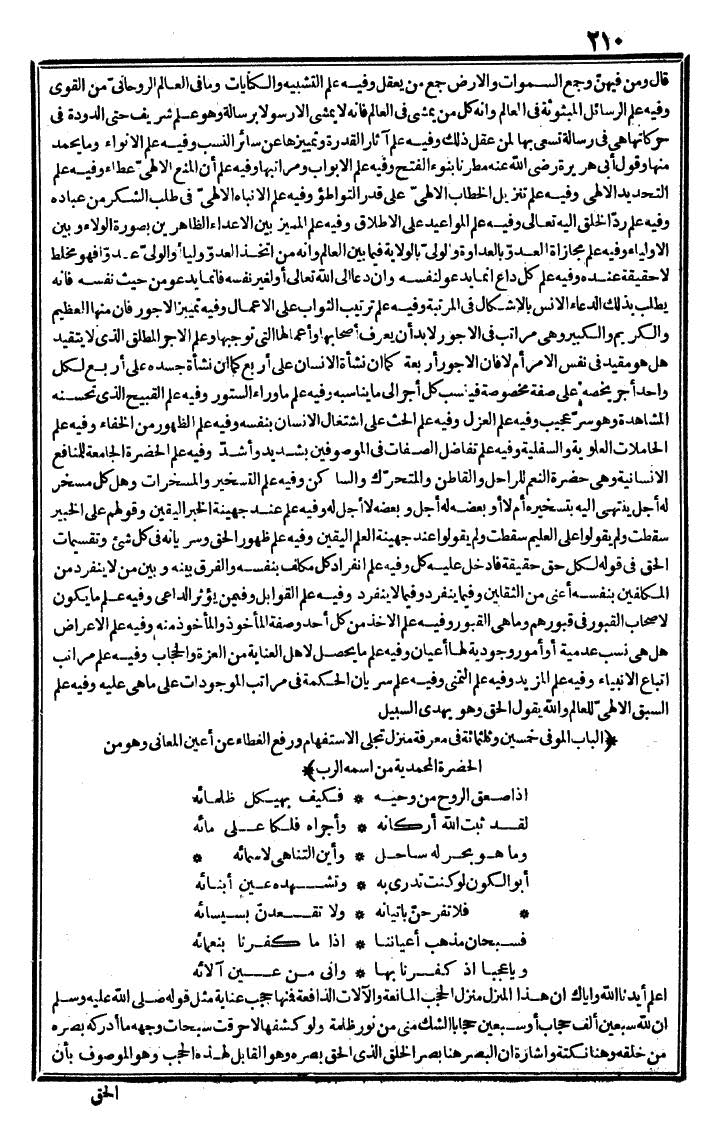 ٢١٠
قال ومن فيهنّ وجمع السموات والارض جمع من يعقل وفيه علم التشبيه والكنايات ومافى العالم الروحانىّ من القوى
وفيه علم الرسائل المبثوثة فى العالم وانه كل من يمشى فى العالم فانه لا يمشى الارسولا برسالة وهو علم شريف حتى الدودة فى
حركاتها هى فى رسالة تسعى بها لمن عقل ذلك وفيه علم آثار القدرة وتمييزها عن سائر النسب وفيه علم الانواء وما يحمد
منها وقول أبى هريرة رضى الله عنه مطرنا بنوء الفتح وفيه علم الابواب ومراتبها وفيه علم أن المنع الالهىّ عطاء وفيه علم
التحديد الالهى وفيه علم تنزيل الخطاب الالهىّ على قدر التواطؤ وفيه علم الانباه الالهىّ فى طلب الشكر من عباده
وفيه علم ردّ الخلق اليه تعالى وفيه علم المواعيد على الاطلاق وفيه علم المميز بين الاعداء الظاهرين بصورة الولاء وبين
الاولياء وفيه علم مجازاة العدوّ بالعداوة والولىّ بالولاية فيما بين العالم وانه من اتخذ العدوّ وليا أو الولىّ عدوّا فهو مخلط
لا حقيقة عنده وفيه علم كل داع انما يدعو لنفسه وان دعا الى الله تعالى أو لغير نفسه فانما يدعو من حيث نفسه فانه
يطلب بذلك الدعاء الانس بالاشكال فى المرتبة وفيه علم ترتيب الثواب على الاعمال وفيه تمييز الاجور فان منها العظيم
والكريم والكبير وهى مراتب فى الاجور لا بدأن يعرف أصحابها وأعمالها التى توجبها وعلم الاجر المطلق الذى لا يتقيد
هل هو مقيد فى نفس الامر أم لا فان الاجور أربعة كما ان نشأة الانسان على أربع كما ان نشأة جسده على أربع لكل
واحد أجر يخصه على صفة مخصوصة فينسب كل أجر الى ما يناسبه وفيه علم ماوراء الستور وفيه علم القبيح الذى تحسنه
المشاهدة وهو سرّ عجيب وفيه علم العزل وفيه علم الحث على اشتغال الانسان بنفسه وفيه علم الظهور من الخفاء وفيه علم
الحاملات العلوية والسفلية وفيه علم تفاضل الصفات فى الموصوفين بشديد وأشدّ وفيه علم الحضرة الجامعة للمنافع
الانسانية وهى حضرة النعم للراحل والقاطن والمتحرّك والساكن وفيه علم التسخير والمسخرات وهل كل مسخر
له أجل ينتهى اليه بتسخيره أم لا أو بعضه له أجل وبعضه لا أجل له وفيه علم عند جهينة الخبر اليقين وقولهم على الخبير
سقطت ولم يقولوا على العليم سقطت ولم يقولوا عند جهينة العلم اليقين وفيه علم ظهور الحق وسريانه فى كل شئ وتقسيمات
الحق فى قوله لكل حق حقيقة فادخل عليه كل وفيه علم انفراد كل مكلف بنفسه والفرق بينه وبين من لا ينفرد من
المكلفين بنفسه أعنى من الثقلين وفيما ينفرد وفيما لا ينفرد وفيه علم القوابل وفيمن يؤثر الداعى وفيه علم ما يكون
لاصحاب القبور فى قبورهم وما هى القبور وفيه علم الاخذ من كل أحد وصفة المأخوذ والمأخوذ منه وفيه علم الاعراض
هل هى نسب عدمية أو أمور وجودية لها أعيان وفيه علم ما يحصل لاهل العناية من العزة والحجاب وفيه علم مراتب
اتباع الانبياء وفيه علم المزيد وفيه علم التمنى وفيه علم سريان الحكمة فى مراتب الموجودات على ماهى عليه وفيه علم
السبق الالهىّ للعالم والله يقول الحق وهو يهدى السبيل
﴿الباب الموفى خمسين وثلثمائة فى معرفة منزل تجلى الاستفهام ورفع الغطاء عن أعين المعانى وهو من
الحضرة المحمدية من اسمه الرب﴾
اذا صعق الروح من وحيه * فكيف بهيكل ظلمائه
لقد ثبت الله أركانه * وأجراه فلكا على مائه
وما هو بحر له ساحل * وأين التناهى لاسمائه *
أبو الكون لو كنت تدرى به * وتشهده عين أبنائه
* فلا تفرحنّ باتيانه * ولا تقعدنّ بسيسائه
فسبحان مذهب أعياننا * اذا ما كفرنا بنعمائه
وياعجبا اذ كفرنا بها * وانى من عين آلائه
اعلم أيدنا الله واياك ان هذا المنزل منزل الحجب المانعة والآلات الدافعة فنها حجب عناية مثل قوله صلى الله عليه وسلم
ان لله سبعين ألف حجاب أو سبعين حجابا الشك منى من نور ظلمة ولو كشفها لاحرقت سبحات وجهه ما أدركه بصره
من خلقه وهنا نكتة واشارة ان البصر هنا بصر الخلق الذى الحق بصره وهو القابل لهذه الحجب وهو الموصوف بأن
الحق